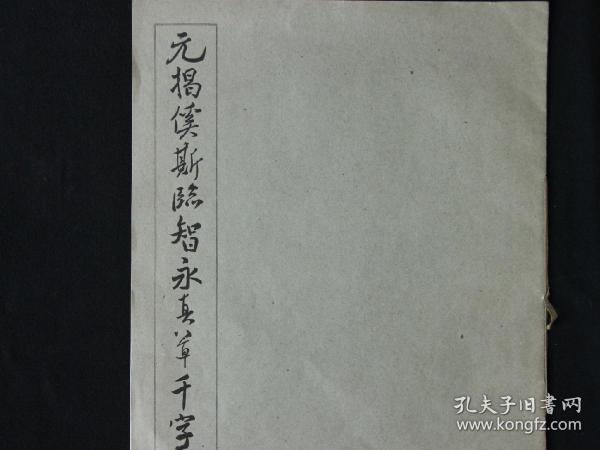 元揭傒斯臨智永真草千字
孔夫子旧書网
www.kongfz.com